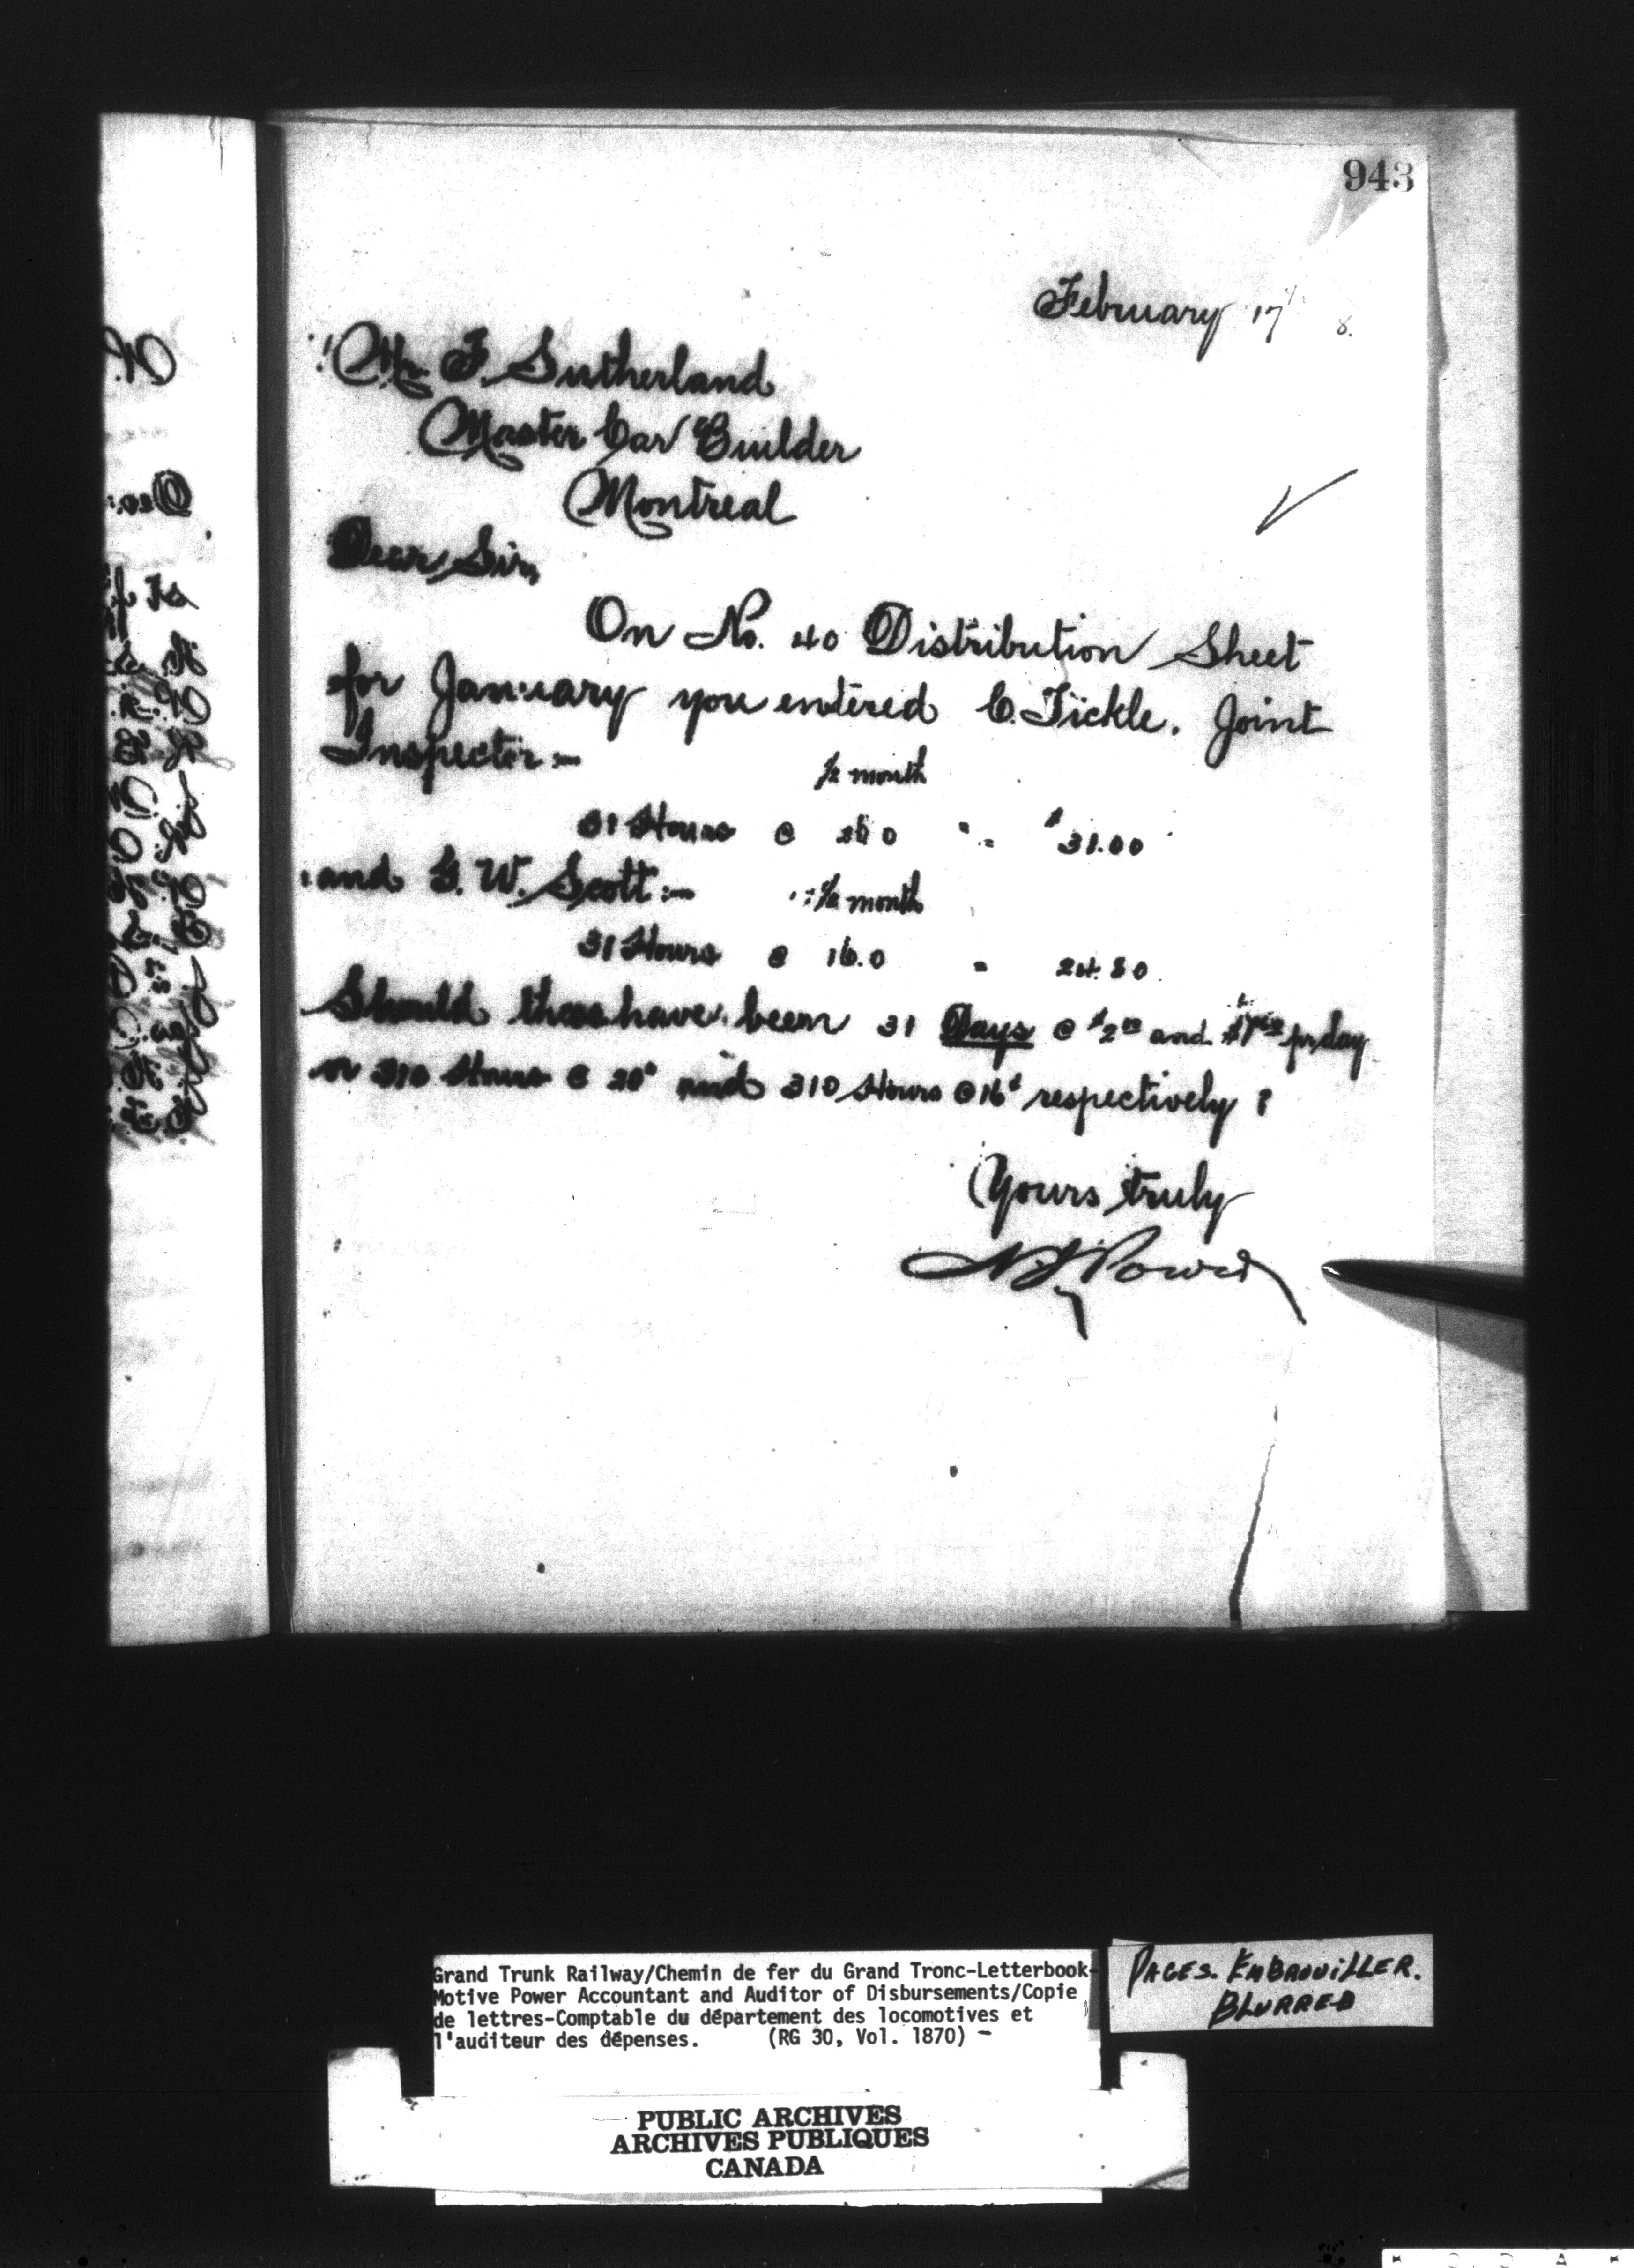 943
February 17th 8.
Mr. F. Sutherland
Master Car Builder
Montreal
Dear Sir,
On No. 40 Distribution Sheet
for January you entered C. Tickle. Joint
Inspector:-
½ month
31 Hours @ 20 0 = $31.00
and G. W. Scott:- ½ month
31 Hours @ 16.0 = 24.80
Should these have been 31 Days @ $2 00 and $1 60 pr day
or 310 Hours @ 20¢ and 310 Hours @ 16¢ respectively?
Yours truly
Power
Grand Trunk Railway/Chemin de fer du Grand Tronc-Letterbook-
Motive Power Accountant and Auditor of Disbursements/Copie
de lettres-Comptable du département des locomotives et
l'auditeur des dépenses. (RG 30, Vol. 1870) -
PAGES. EMBROUILLER.
BLURRED
PUBLIC ARCHIVES
ARCHIVES PUBLIQUES
CANADA